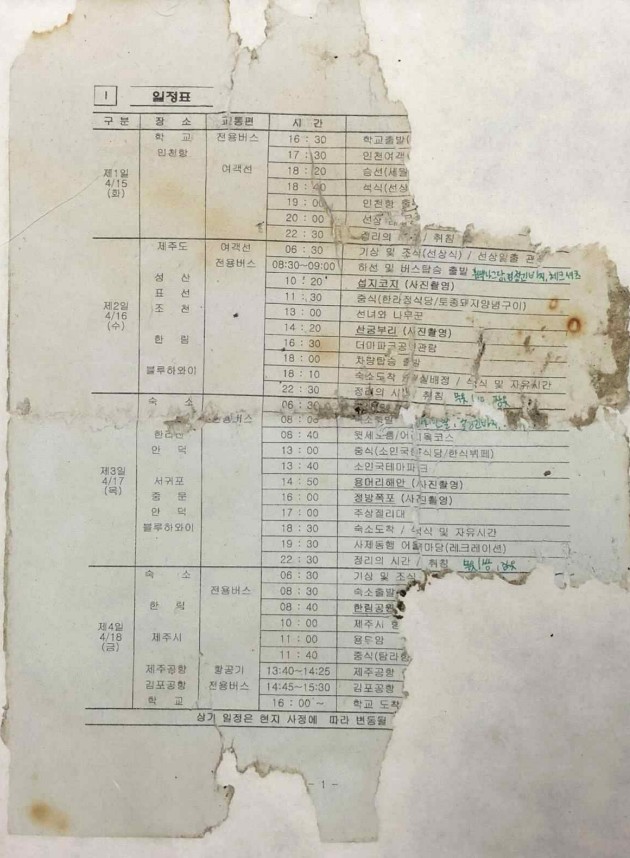 I 일정표
구 분 장 소 교통편 시 간
제1일 4/15 (화)
학 교 전용버스 16 : 30 학교출발
인천항 17 : 30 인천여객
여객선 18 : 20 승선(세월
18 : 40 석식(선상
19 : 00 인천항
20 : 00 선상
22 : 30 정리의 / 취침
제2일 4/16 (수)
제주도 여객선 06 : 30 기상 및 조식(선상식) / 선상일출 관
전용버스 08:30~09:00 하선 및 버스탑승 출발
성 산 10 : 20 섭지코지 (사진촬영)
표 선 11 : 30 중식(한라정식당/토종돼지양념구이)
조 천 13 : 00 선녀와 나무꾼
14 : 20 산굼부리 (사진촬영)
한 림 16 : 30 더마파크공연관람
18 : 00 차량탑승 출발
블루하와이 18 : 10 숙소도착 / 실배정 / 석식 및 자유시간
22 : 30 정리의 시 / 취침
제3일 4/17 (목)
숙 소 06 : 30
전용버스 08 : 00 숙소출발
한라산 08 : 40 윗세오름/어리목코스
안 덕 13 : 00 중식(소인국 식당/한식뷔페)
13 : 40 소인국테마파크
서귀포 14 : 50 용머리해안 (사진촬영)
중 문 16 : 00 정방폭포 (사진촬영)
안 덕 17 : 00 주상절리대
블루하와이 18 : 30 숙소도착 / 석식 및 자유시간
19 : 30 사제동행 어울마당(레크레이션)
22 : 30 정리의 시간 / 취침
제4일 4/18 (금)
숙 소 06 : 30 기상 및 조식
전용버스 08 : 30 숙소출발
한 림 08 : 40 한림공원
10 : 00 제주시
제주시 11 : 00 용두암
11 : 40 중식(탐라
제주공항 항공기 13:40~14:25 제주공항
김포공항 전용버스 14:45~15:30 김포공항
학 교 16 : 00 ~ 학교 도착
상기 일정은 현지 사정에 따라 변동될
- 1 -